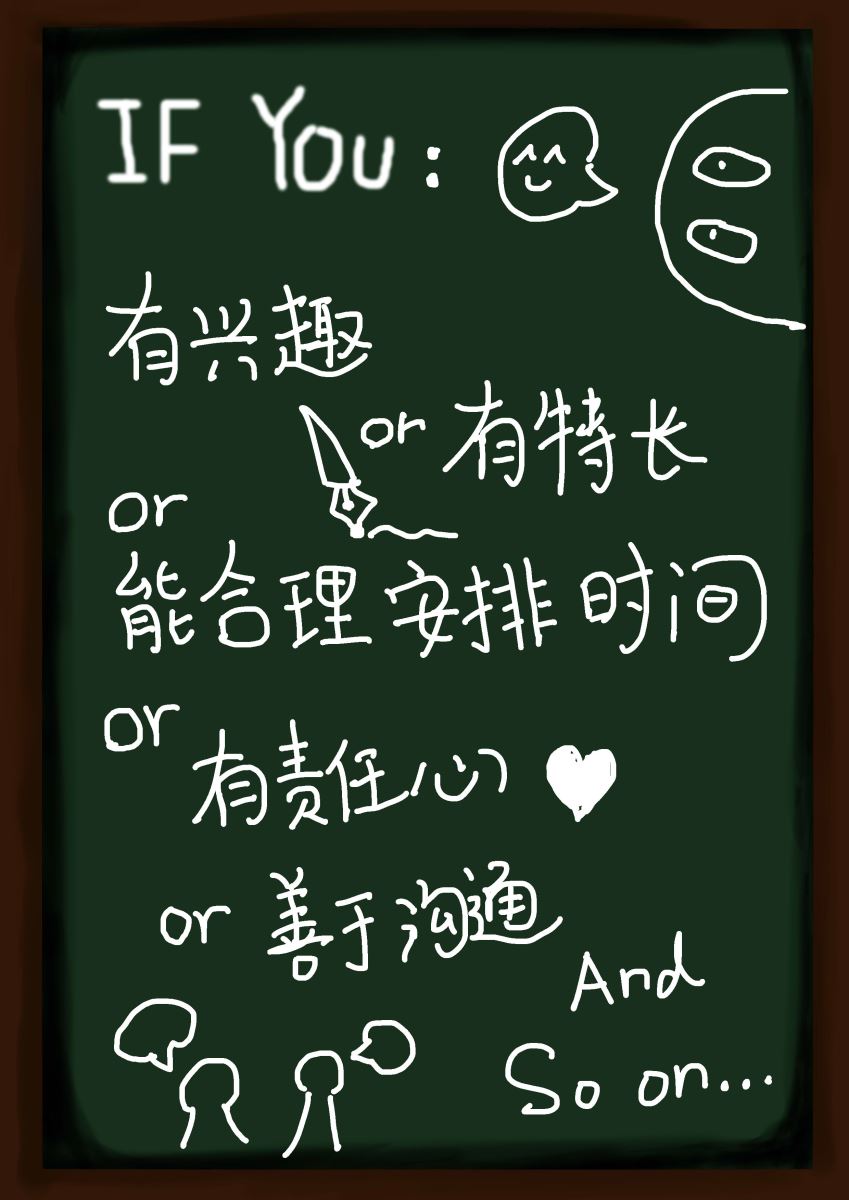 IF You:
有兴趣
or 有特长
or
能合理安排时间
or
有责任心
or 善于沟通
And
So on...